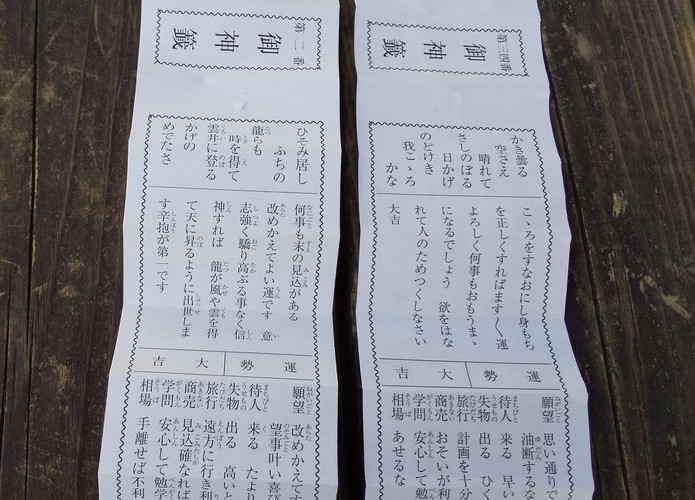 第三四番
御神籤
かき曇る
空さえ
晴れて
さしのぼる
日かげ
のどけき
我こゝろ
かな
こゝろをすなおにし身もち
を正しくすればます〱運
よろしく何事もおもうまゝ
になるでしょう 欲をはな
れて人のためつくしなさい
大吉
運勢 大吉
願望 思い通りで
油断するな
待人 来る 早い
失物 出る ひ
旅行 計画を十分
商売 おそいが利
学問 安心して勉
相場 あせるな
第二番
御神籤
ひそみ居し
ふちの
龍らも
時を得て
雲井に登る
かげの
めでたさ
何事も末の見込がある
改めかえてよい運です 意
志強く驕り高ぶる事なく信
神すれば 龍が風や雲を得
て天に昇るように出世しま
す辛抱が第一です
運勢 大吉
願望 改めかえです
望事叶い喜
待人 来る たより
失物 出る 高いと
旅行 遠方に行き利
商売 見込確なれば
学問 安心して勉学
相場 手離せば不利